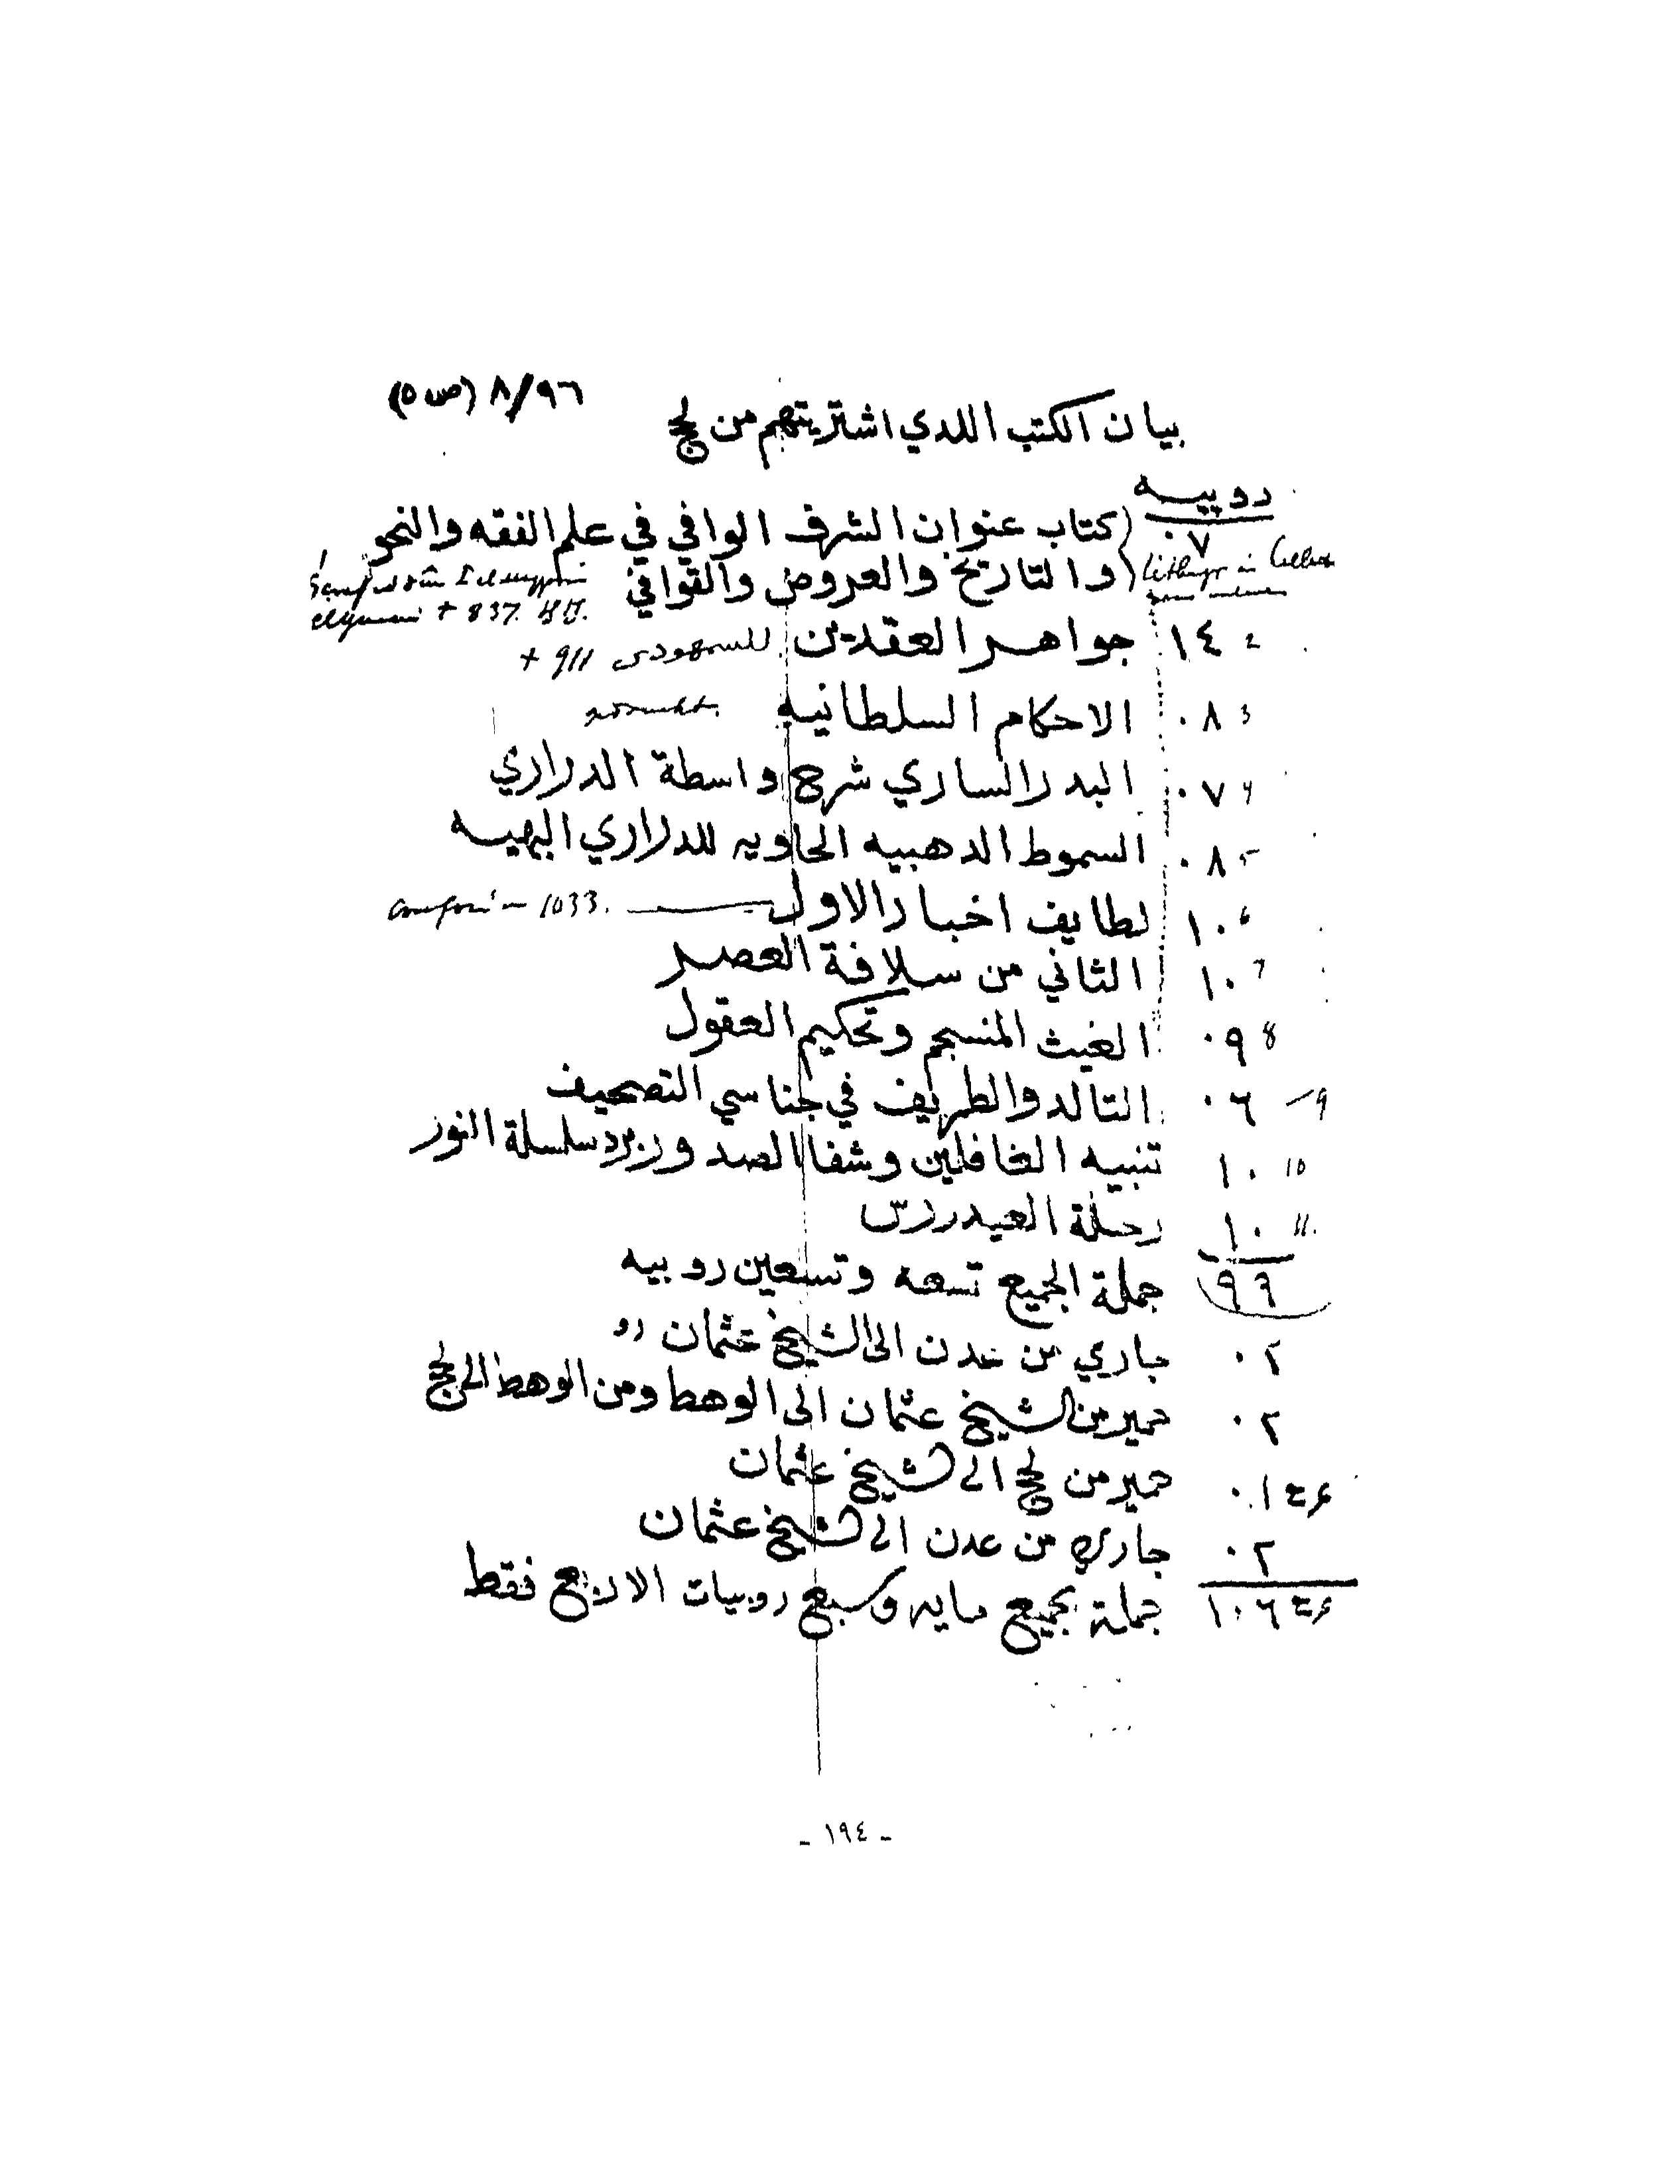 ٨/٩٦ (ص ٥)
بيان الكتب اللدي اشتريتهم من لحج
روپيه
٠٧ كتاب عنوان الشرف الوافي في علم الفقه والنحو
والتاريخ والعروض والقوافي
+ 837
2 ١٤ جواهر العقدين للسمهودى 911 +
3 ٠٨ الاحكام السلطانيه
4 ٠٧ البدر الساري شرح واسطة الدراري
5 ٠٨ السموط الدهبيه الحاويه للدراري البهيه
6 ١٠ لطايف اخبار الاول 1033.
7 ١٠ الثاني من سلافة العصر
8 ٠٩ الغيث المنسجم وتحكيم العقول
9 ٠٦ التالد والطريف في جناسي التصحيف
10 ١٠ تنبيه الغافلين وشفا الصدور برد سلسلة النور
11. ١٠ رحلة العيدروس
٩٩ جملة الجميع تسعه وتسعين روبيه
٠٢ جاري من عدن الى الشيخ عثمان رو
٠٢ حمير من الشيخ عثمان الى الوهط ومن الوهط الى لحج
٠١ حمير من لحج الى شيخ عثمان
٠٢ جاري من عدن الى شيخ عثمان
١٠٦ جملة بجميع مايه وسبع روبيات الا ربع فقط
- ١٩٤ -